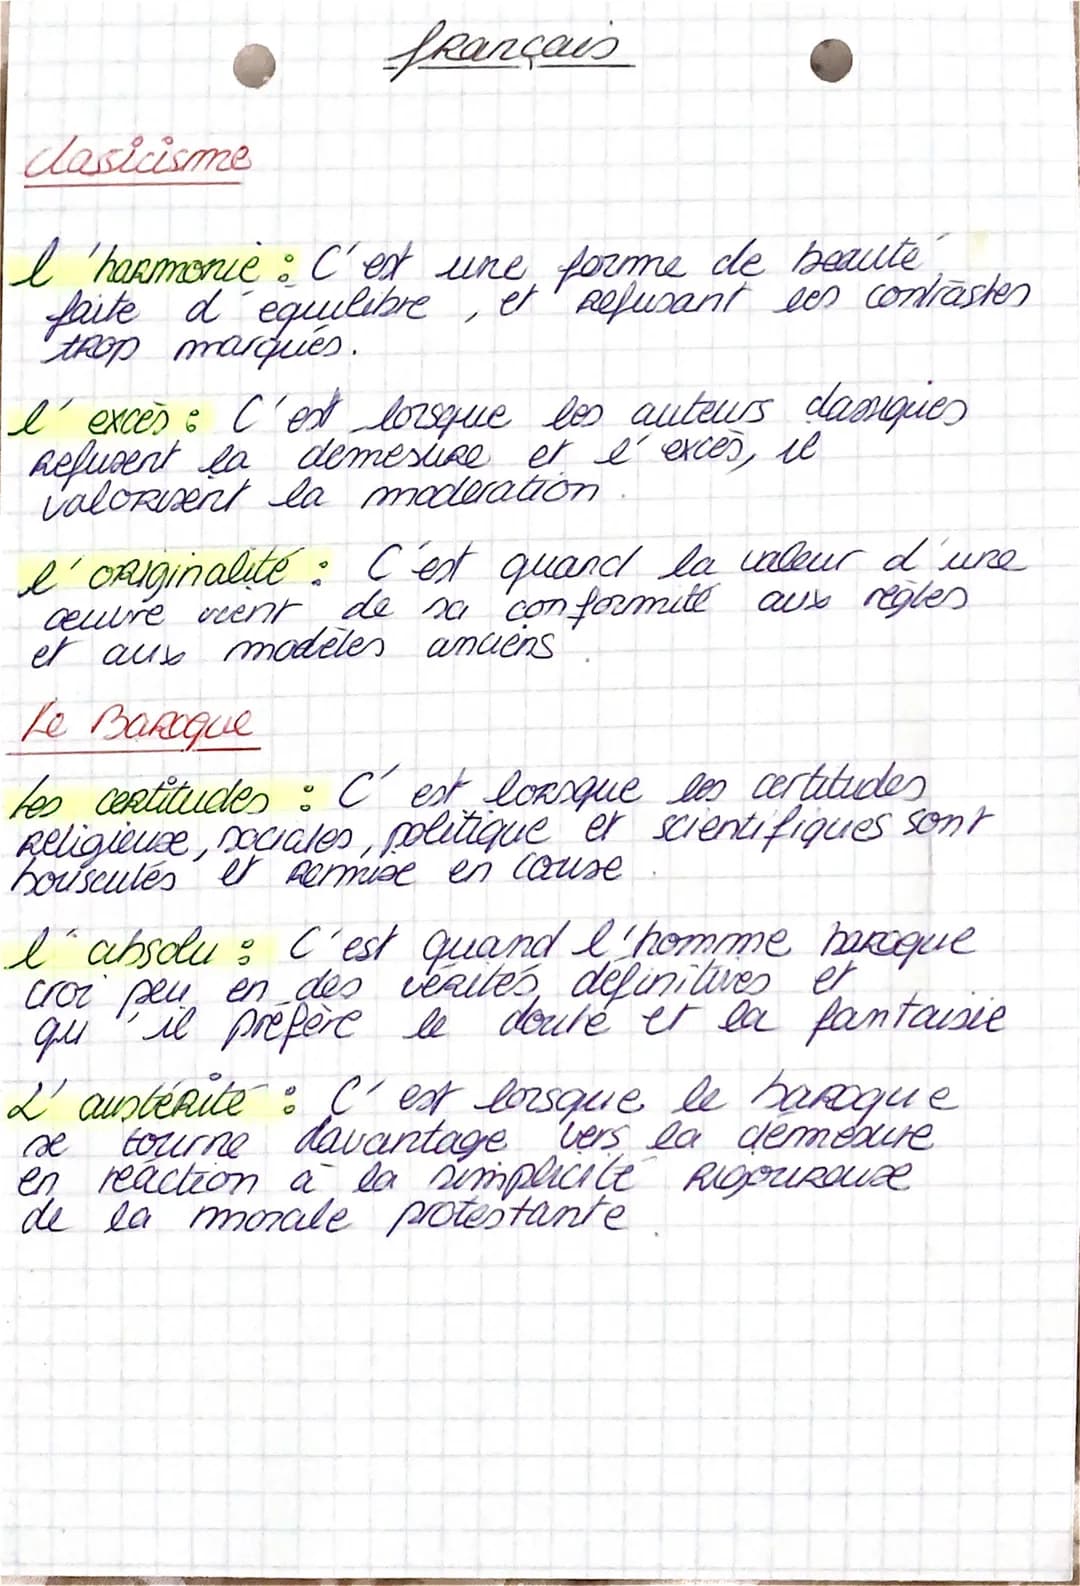 français
clasicisme
l'harmonie : C'est une forme de beauté
faite d'équilibre, et refusant les contrastes
trop marqués.
l'excès : C'est lorsque les auteurs classiques
refusent la démesure et l'excès, il
valorisent la modération.
l'originalité : C'est quand la valeur d'une
œuvre vient de sa conformité aux règles
et aux modèles anciens.
Le Baroque
Les certitudes : C'est lorsque les certitudes
religieuse, sociales, politique et scientifiques sont
bousculés et remise en cause.
l'absolu : C'est quand l'homme baroque
croi peu en des vérités définitives et
qu'il préfère le doute et la fantaisie
L'austérité : C'est lorsque le baroque
se tourne davantage vers la démesure
en réaction à la simplicité rigoureuse
de la morale protestante.